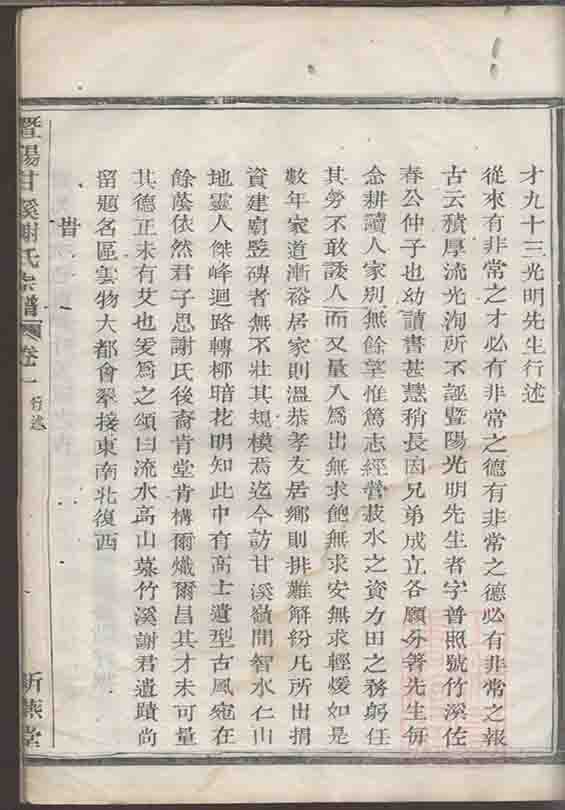 才九十三光明先生行述
從來有非常之才必有非常之德有非常之德必有非常之報
古云積厚流光洵所不誣暨陽光明先生者字普照號竹溪佐
春公仲子也幼讀書甚慧稍長因兄弟成立各願分箸先生每
念耕讀人家別無餘望惟篤志經營菽水之資力田之務躬任
其勞不敢諉人而又量入為出無求飽無求安無求輕煖如是
數年家道漸裕居家則溫恭孝友居鄉則排難解紛凡所出捐
資建廟竪碑者無不壯其規模焉迄今訪甘溪嶺間智水仁山
地靈人傑峰迴路轉栁暗花明知此中有高士遺型古風宛在
餘蔭依然君子思謝氏後裔肯堂肯構爾熾爾昌其才未可量
其德正未有艾也爰為之頌曰流水高山慕竹溪謝君遺蹟尚
留題名區雲物大都會翠接東南北復西
旹
暨陽甘溪謝氏宗譜 卷一 行述